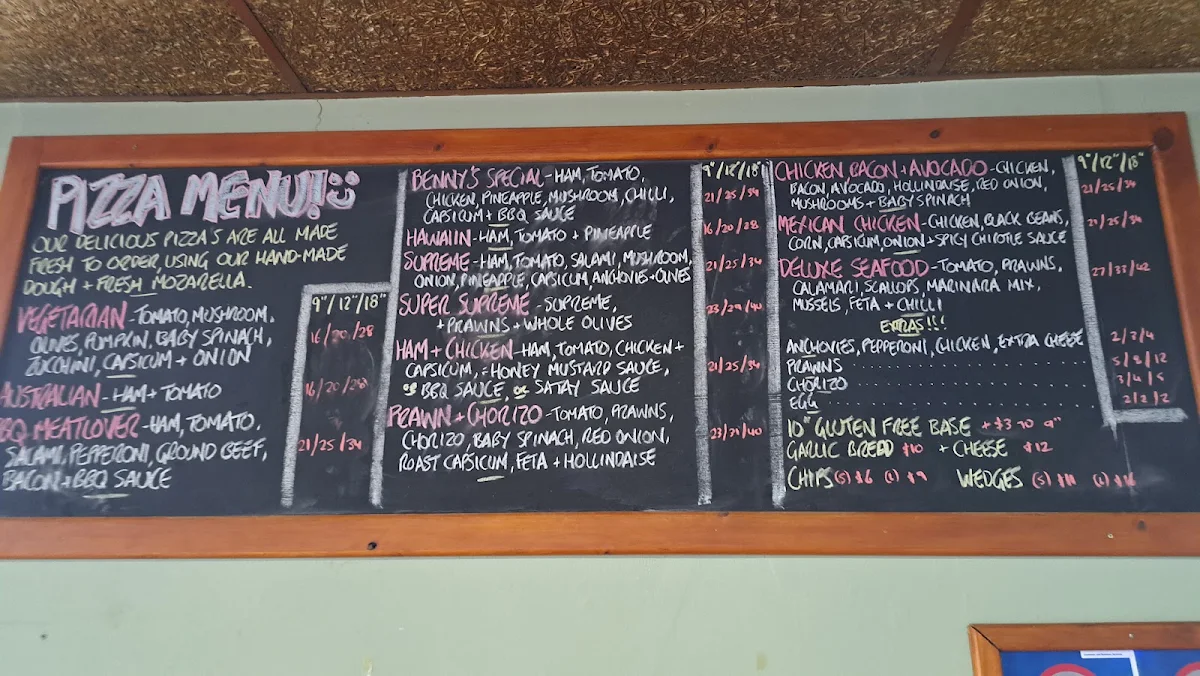 PIZZA MENU!
OUR DELICIOUS PIZZA'S ARE ALL MADE
FRESH TO ORDER, USING OUR HAND-MADE
DOUGH + FRESH MOZARELLA.
9"/12"/18"
VEGETARIAN - TOMATO, MUSHROOM,
OLIVES, PUMPKIN, BABY SPINACH, 16/20/28
ZUCCHINI, CAPSICUM + ONION
AUSTRALIAN - HAM + TOMATO 16/20/28
BBQ MEATLOVER - HAM, TOMATO,
SALAMI, PEPPERONI, GROUND BEEF, 21/25/34
BACON + BBQ SAUCE
9"/12"/18"
BENNY'S SPECIAL - HAM, TOMATO,
CHICKEN, PINEAPPLE, MUSHROOM, CHILLI, 21/25/34
CAPSICUM + BBQ SAUCE
HAWAIIN - HAM, TOMATO + PINEAPPLE 16/20/28
SUPREME - HAM, TOMATO, SALAMI, MUSHROOM,
ONION, PINEAPPLE, CAPSICUM, ANCHOVIES + OLIVES 21/25/34
SUPER SUPREME - SUPREME,
+ PRAWNS + WHOLE OLIVES
HAM + CHICKEN - HAM, TOMATO, CHICKEN +
CAPSICUM, HONEY MUSTARD SAUCE, 21/25/34
or BBQ SAUCE, or SATAY SAUCE
PRAWN + CHORIZO - TOMATO, PRAWNS,
CHORIZO, BABY SPINACH, RED ONION, 23/31/40
ROAST CAPSICUM, FETA + HOLLINDAISE
9"/12"/18"
CHICKEN BACON + AVOCADO - CHICKEN,
BACON, AVOCADO, HOLLINDAISE, RED ONION, 21/25/34
MUSHROOMS + BABY SPINACH
MEXICAN CHICKEN - CHICKEN, BLACK BEANS, 21/25/34
CORN, CAPSICUM, ONION + SPICY CHIPOTLE SAUCE
DELUXE SEAFOOD - TOMATO, PRAWNS, 27/33/42
CALAMARI, SCALLOPS, MARINARA MIX,
MUSSELS, FETA + CHILLI
EXTRAS!!!
ANCHOVIES, PEPPERONI, CHICKEN, EXTRA CHEESE 2/3/4
PRAWNS 5/8/12
CHORIZO 3/4/5
EGG 2/2/2
10" GLUTEN FREE BASE + $3 TO 9"
GARLIC BREAD $10 + CHEESE $12
CHIPS (S) $6 (L) $9 WEDGES (S) $11 (L)